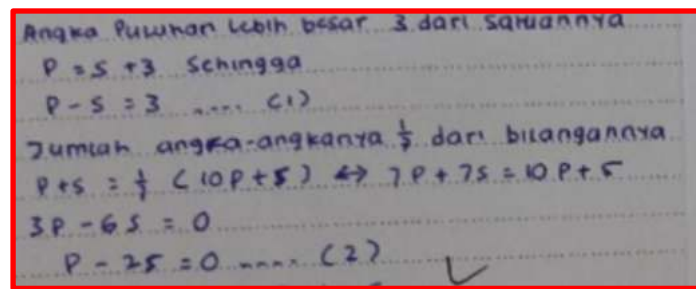 Angka Puluhan lebih besar 3 dari satuannya
P = S + 3 Sehingga
P - S = 3 .... (1)
Jumlah angka-angkanya 1/7 dari bilangannya
P + S = 1/7 (10P + S) ↔ 7P + 7S = 10P + S
3P - 6S = 0
P - 2S = 0 .... (2)